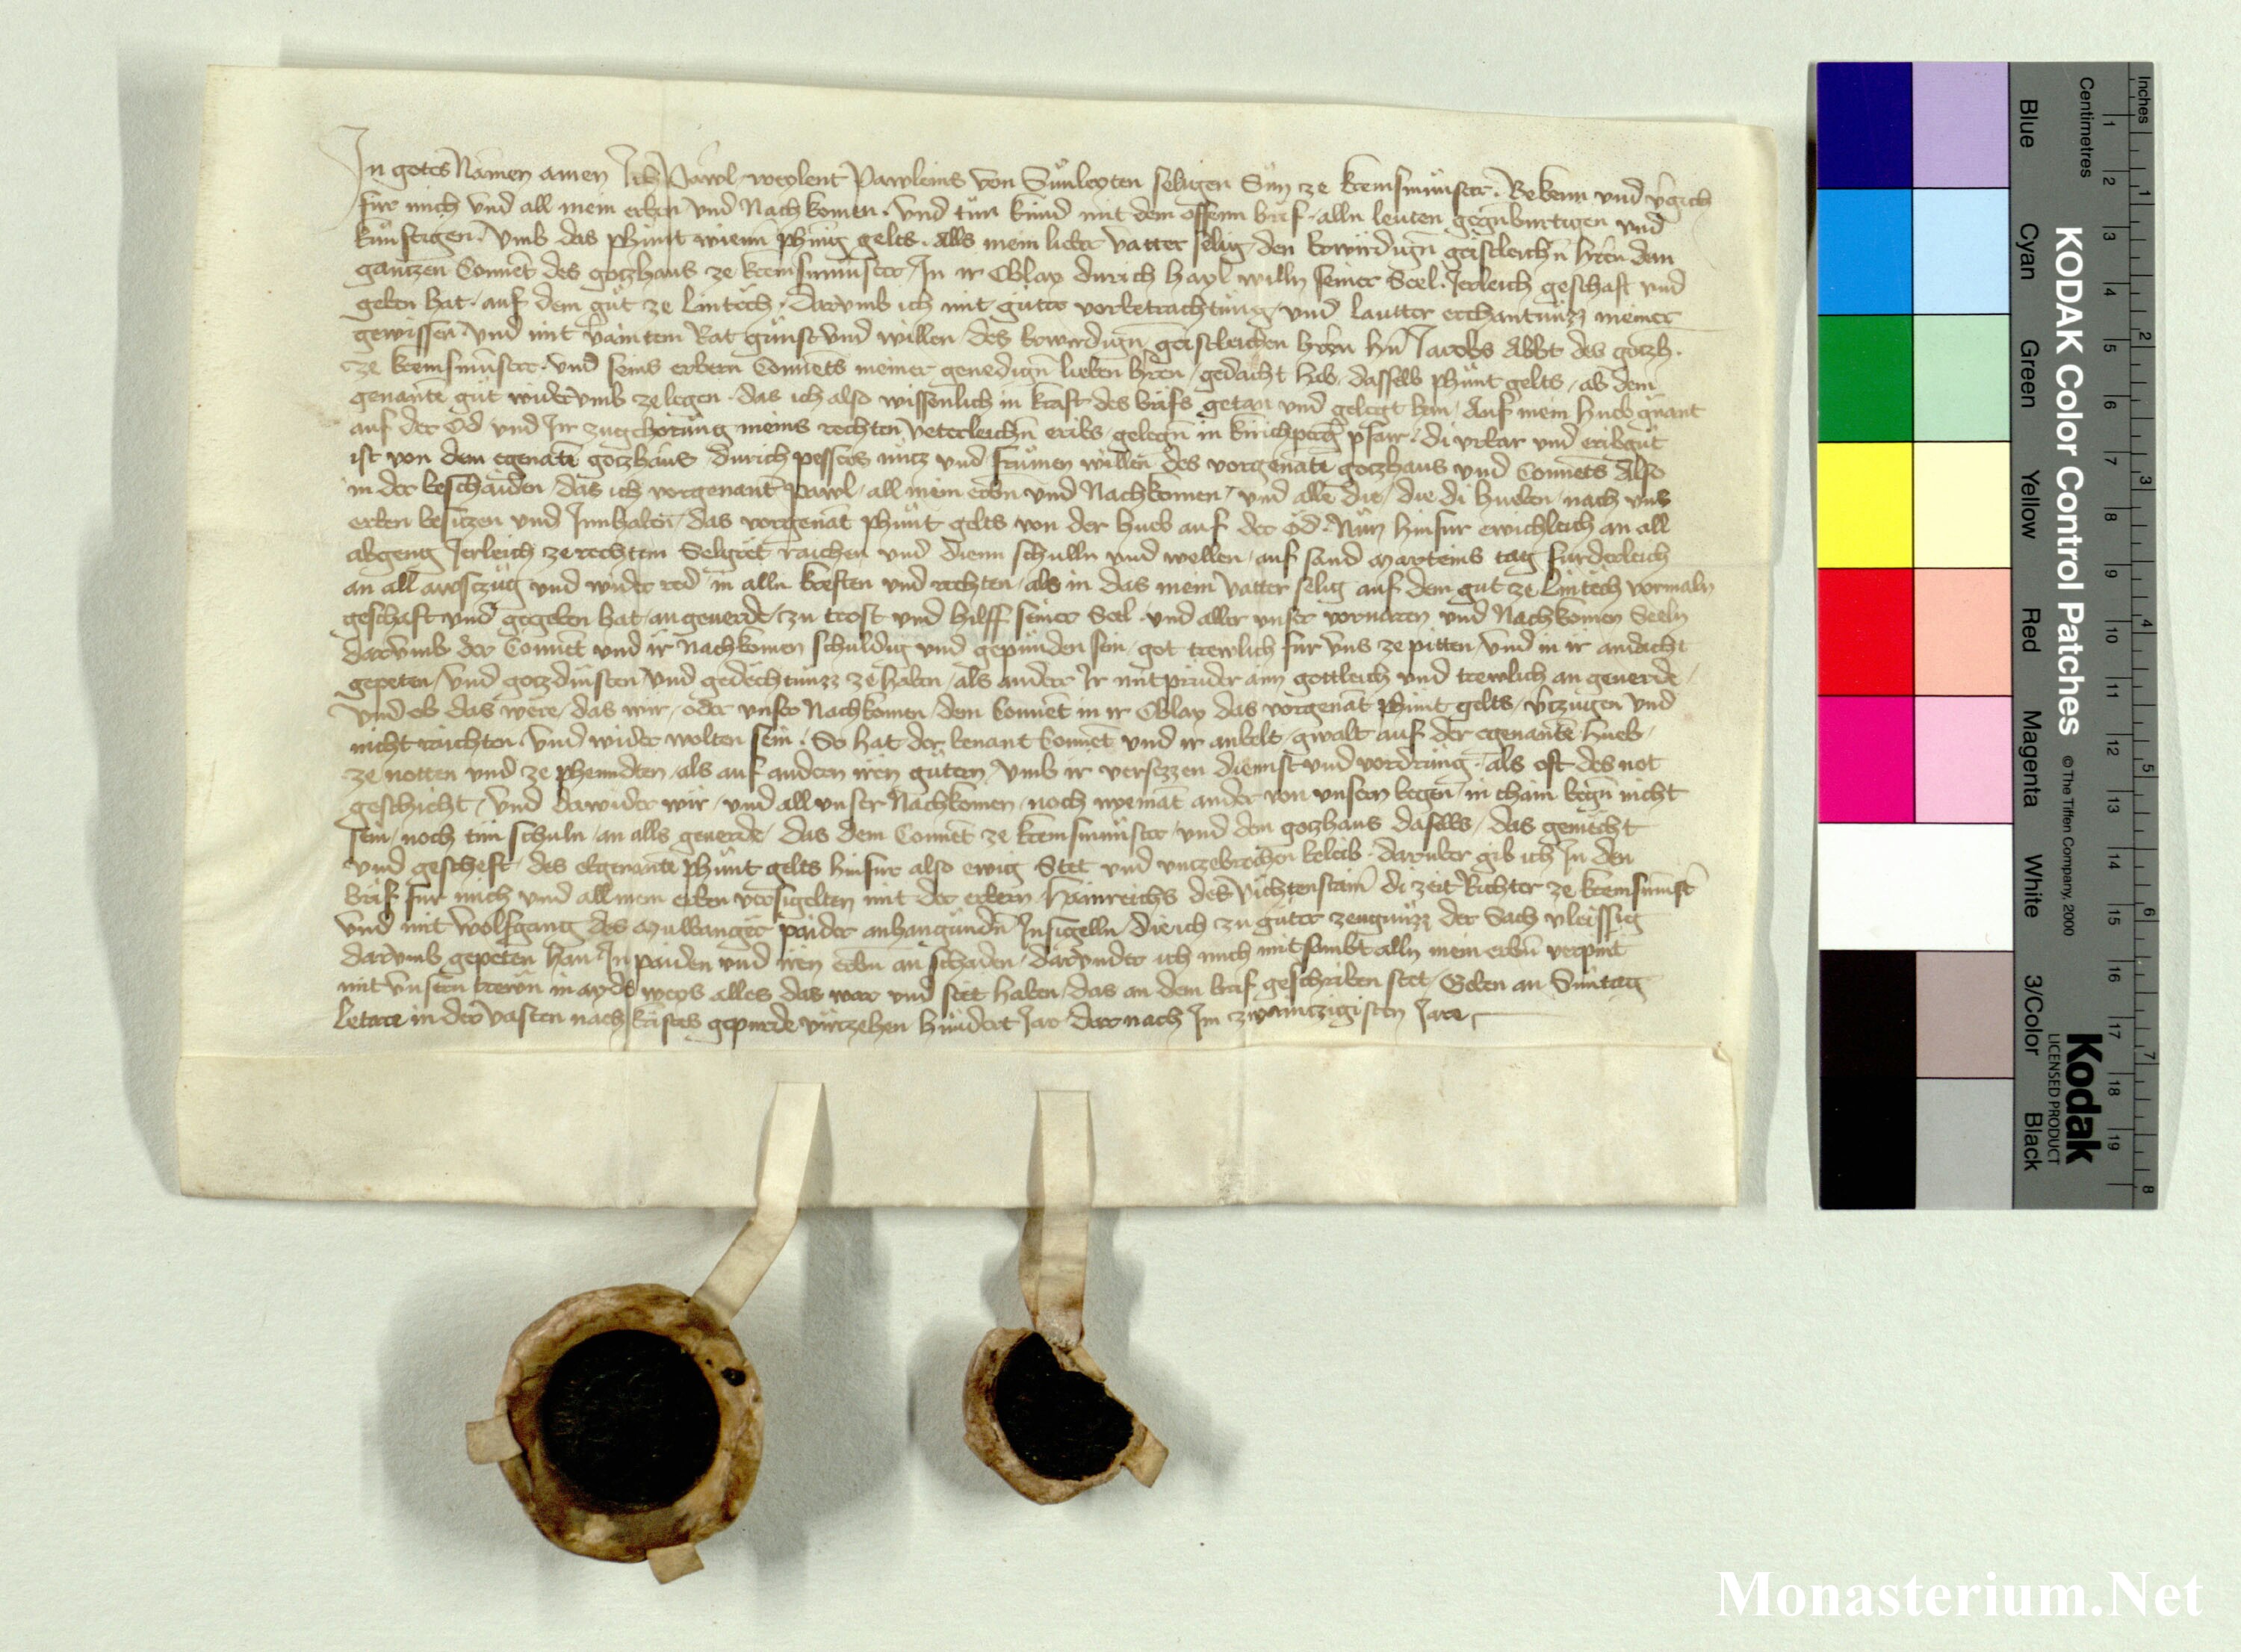 In gotes Namen amen Ich Pawl weylent Pawleins von Sunleyten seligen Sun ze kremsmunster. Bekenn und vgich
fur mich und all mein erben und Nachkomen. Und tun kund mit dem offenn brif alln leuten gegnburtigen und
kunftigen. Umb das phunt wienn phenig gelts. Alls mein lieber vatter selig den Erwirdign geistleichn hren dem
gantzen Conuet des gotzhaus ze kremsmunster In ir Oblay durich hayl willn seiner Seel. Jerleich geschaft und
geben hat auf dem gut ze Lintech. Darumb ich mit guter vorbetrachtung und lautter erchantnuzz meiner
gewissen und mit Rat gunst und willen des Erwirdign geistleichen hren hn Jacobs Abbt des gotzh.
ze kremsmunster. und seins erbern Conuets meiner genedign lieben hren gedacht hab dasselb phunt gelts ab dem
genante gut widerumb ze legen. das ich also wissenlich in kraft des brifs getan und gelegt han Auf mein hueb gnant
auf der Od und Ir zugehorung meins rechten veterleichn eribs gelegn in kirichperg pfarr. di urbar und eribgut
ist von dem egenate gotzhaus durich pessers nutz und frumen willen des vorgenate gotzhaus und Conuets Also
in der beschaiden das ich vorgenant Pawl all mein erbn und Nachkomen und alle die die di hueben nach uns
erben besitzen und Innhaben das vorgenat phunt gelts von der hueb auf der Od. Nun hinfur ewichleich an all
abgeng Jerleich ze rechtem Selgret raichen und dienn schulln und wellen auf sand Marteins tag furderleich
an all awsczug und wider red in alln kreften und rechten als in das mein vatter selig auf dem gut ze Lintech vormaln
geschaft und gegeben hat an geuerde zu trost und hilff seiner Seel und aller unser voruarern und Nachkomen Seeln
darumb der Conuet und ir nachkomen schuldig und gepunden sein got trewlich fur uns ze pitten und in ir andacht
gepeten und gotzdinsten und gedechtnuzz ze haben als ander Ir mitpruder ain gottleich und trewlich an geuerde
Und ob das were das wir oder unser Nachkomen dem Conuet in ir Oblay das vorgenat phunt gelts vrzugen und
nicht raichten und wider wolten sein. So hat der benant Conuet und ir anbelt gwalt auf der egenante hueb
ze notten und ze phenndten als auf andern iren gutern umb ir versezzen diennst und vordrung. als oft des not
geschicht und dawider wir und all unser Nachkomen noch nyemat ander von unsern wegen in chain wegn nicht
sein noch tun schuln an alls geuerde das dem Conuet ze kremsmunster und den gotzhaus daselbs das gemecht
und gescheft des obgenante phunt gelts hinfur also ewig Stet und unczebrochen beleib. daruber gib ich In den
brif fur mich und all mein erben versigelten mit der erbern Hainreichs des Vichtenstain di zeit Richter ze kremsmunst
und mit Wolfgang des Mulwanger paider anhangundn Insigelln die ich zu guter zeugnuzz der Sach vleissig
darumb gepeten han In paiden und iren erbn an schaden darunder ich mich mitsambt alln mein erbn verpint
mit unsern trewn in ayds weys alles das war und stet haben das an dem brif geschriben stet Geben an Suntag
letare in der vasten nach kristes gepurde virtzehen hundert Jar dar nach Im zwaintzigisten Jare
KODAK Color Control Patches © The Tiffen Company, 2000
Kodak
LICENSED PRODUCT
Blue Cyan Green Yellow Red Magenta White 3/Color Black
Centimetres 1 2 3 4 5 6 7 8 9 10 11 12 13 14 15 16 17 18 19
Inches 1 2 3 4 5 6 7 8
Monasterium.Net